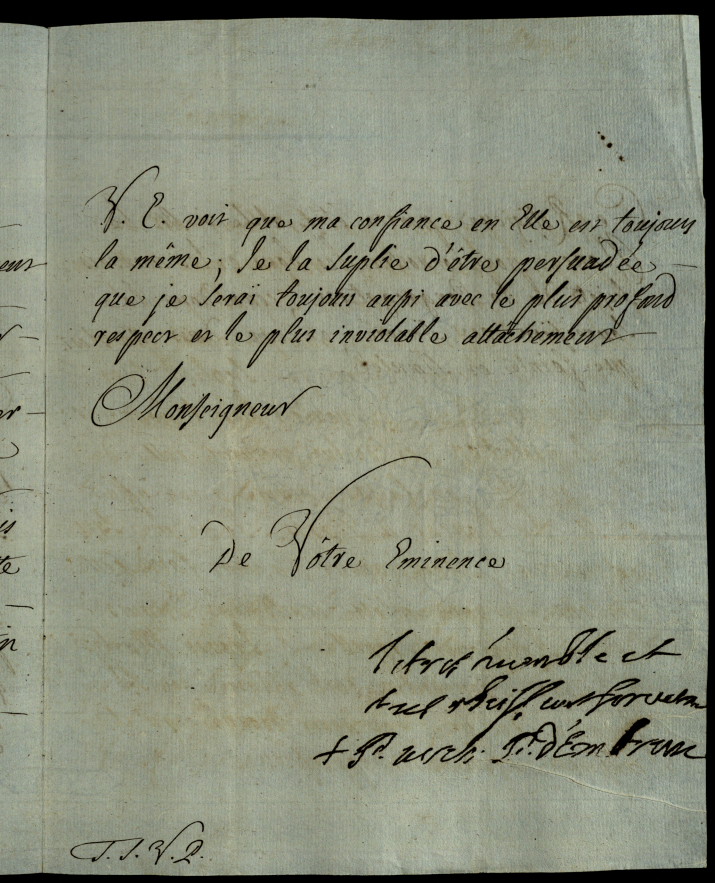 V. E. voit que ma confiance en Elle est toujours
la même; Je la suplie d'être persuadée
que je serai toujours aussi avec le plus profond
respect et le plus inviolable attachement
Monseigneur
De Vôtre Eminence
le tres humble et
tres obeiss. serviteur
+ P. arch. Pr. d'Embrun
T. S. V. P.